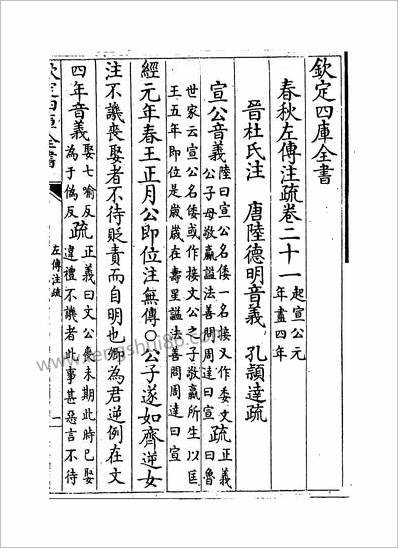 欽定四庫全書
春秋左傳注疏卷二十一
起宣公元
年盡四年
晉杜氏注 唐陸德明音義 孔穎達疏
宣公音義
陸曰宣公名倭一名接又作委文
公子母敬嬴諡法善問周達曰宣
疏
正義
曰魯
世家云宣公名倭或作接文公之子敬嬴所生以匡
王五年即位是歲歲在壽星諡法善問周達曰宣
經元年春王正月公即位注無傳○公子遂如齊逆女
注不譏喪娶者不待貶責而自明也卿為君逆例在文
四年音義
娶七喻反
為于偽反
疏
正義曰文公喪未期此時已娶
違禮不譏者此事甚惡言不待
欽定四庫全書
左傳注疏
一